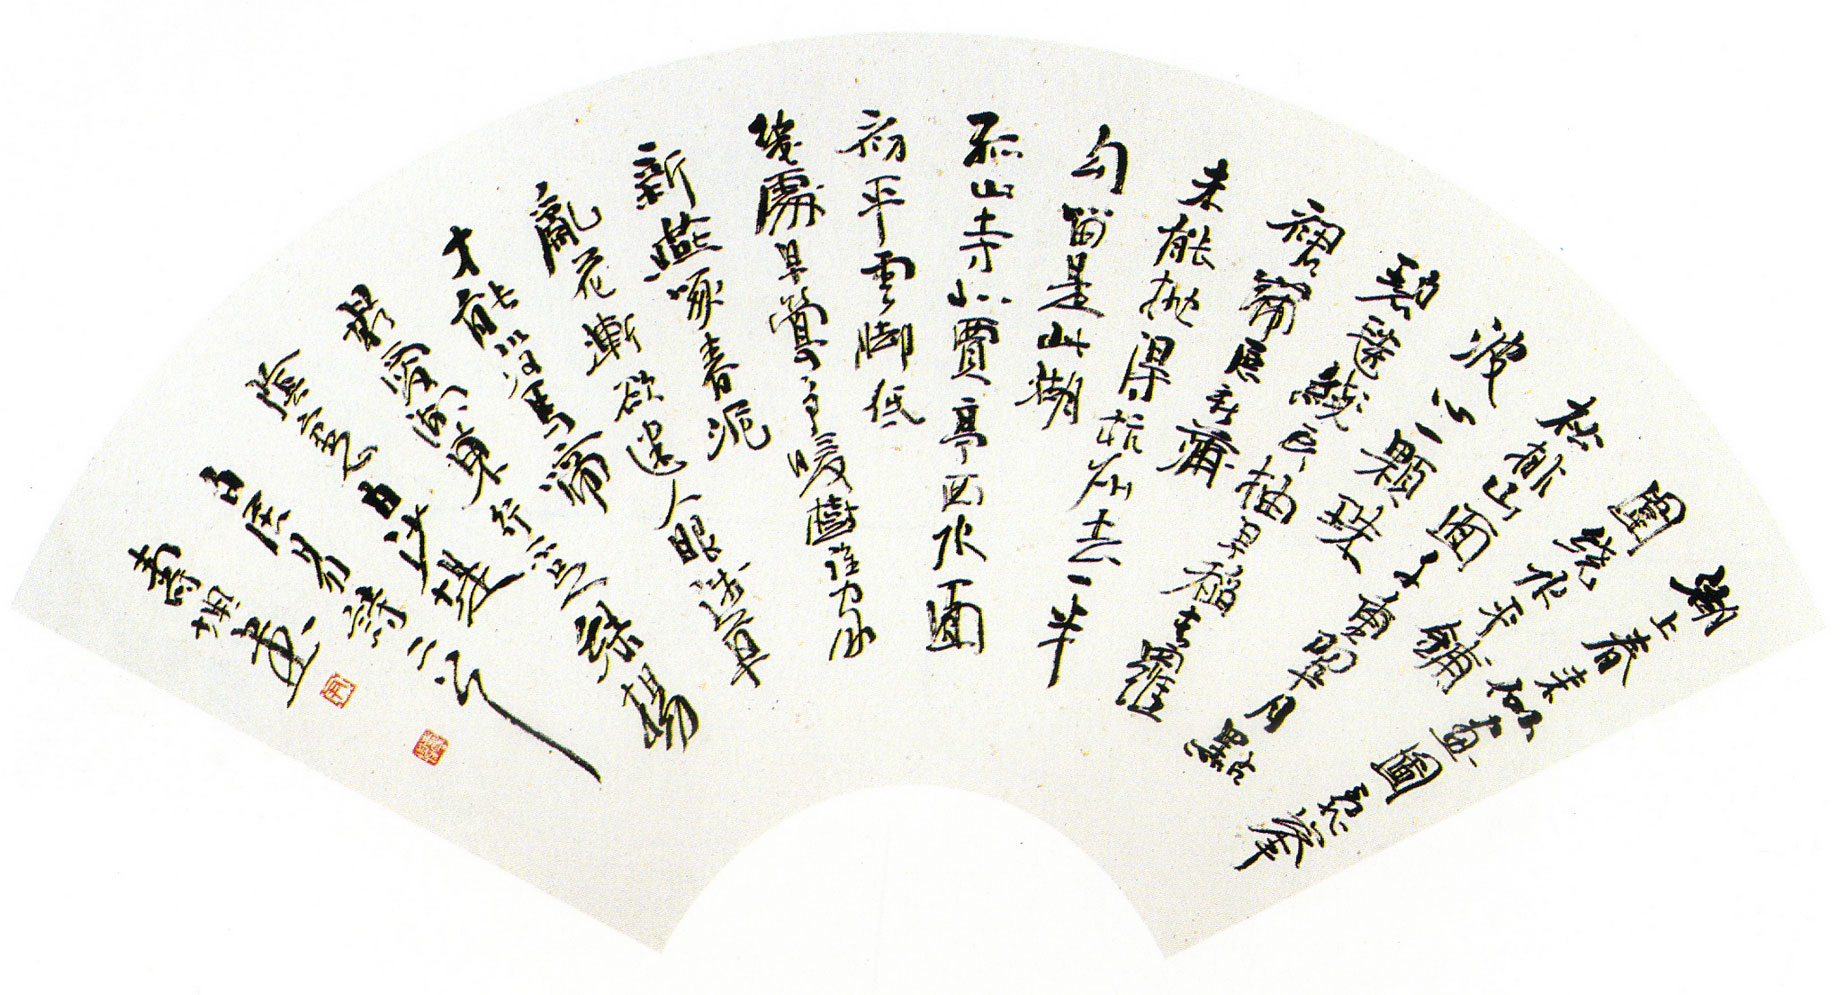 湖上春来似畫圖乱峯
圍绕水平鋪
松排山面千重翠月點
波心一顆珠
碧毯綫頭抽早稻青羅
裙带展新蒲
未能抛得杭州去一半
勾留是此湖
孤山寺北賈亭西水面
初平雲脚低
幾處早鶯争暖樹誰家
新燕啄春泥
亂花漸欲迷人眼浅草
才能没馬蹄
最愛湖東行不足緑楊
陰裏白沙堤
白居易詩二首